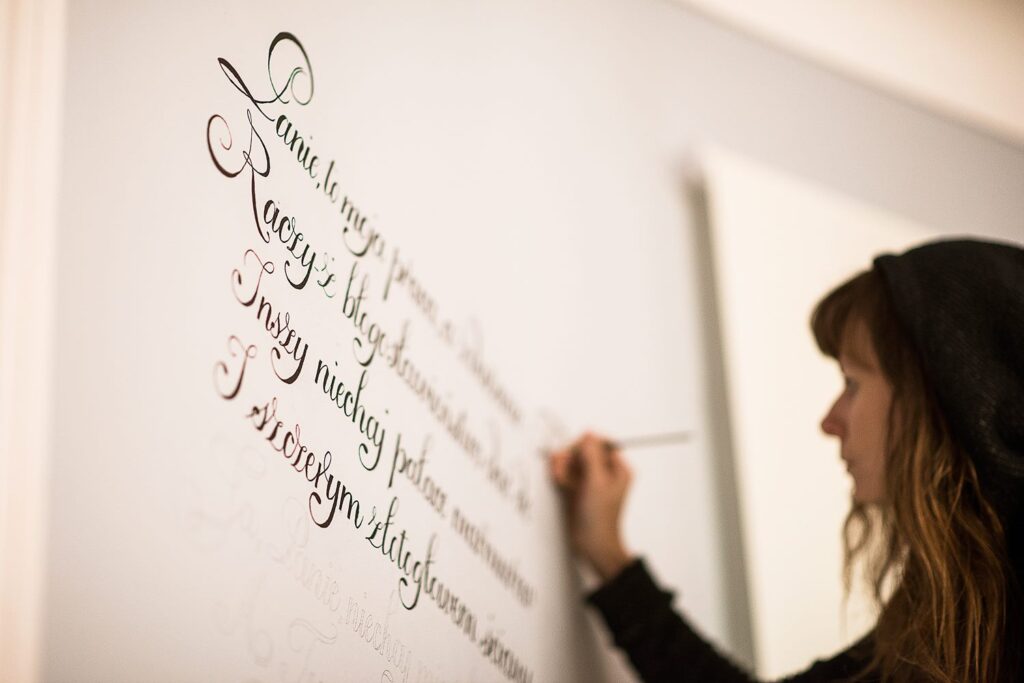 Panie, to moja praca, a zdarzenie
Raczyż błogosławieństwo dać do
Inszy niechaj pałace marmurowe
I szczerym złotogłowem ściany
Panie, niechaj